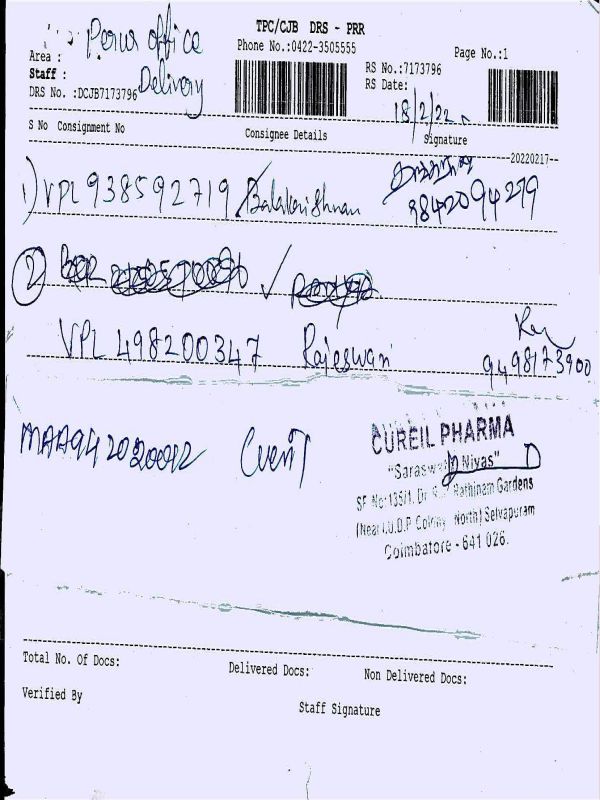 TPC/CJB DRS - PRR
Perur office
Phone No.:0422-3505555
Page No.:1
Area :
Staff :
Delivery
RS No.:7173796
RS Date:
DRS No. :DCJB7173796
18/2/22
S No Consignment No
Consignee Details
Signature
--20220217--
1) VPL 938592719 Balakrishnan
9842094279
2)
VPL 498200347 Rajeswari
9498173900
MAA942020092
CUREIL PHARMA
"Saraswathi Nivas"
SF No:135/1, Dr. Rathinam Gardens
(Near I.U.D.P Colony North) Selvapuram
Coimbatore - 641 026.
Total No. Of Docs:
Delivered Docs:
Non Delivered Docs:
Verified By
Staff Signature